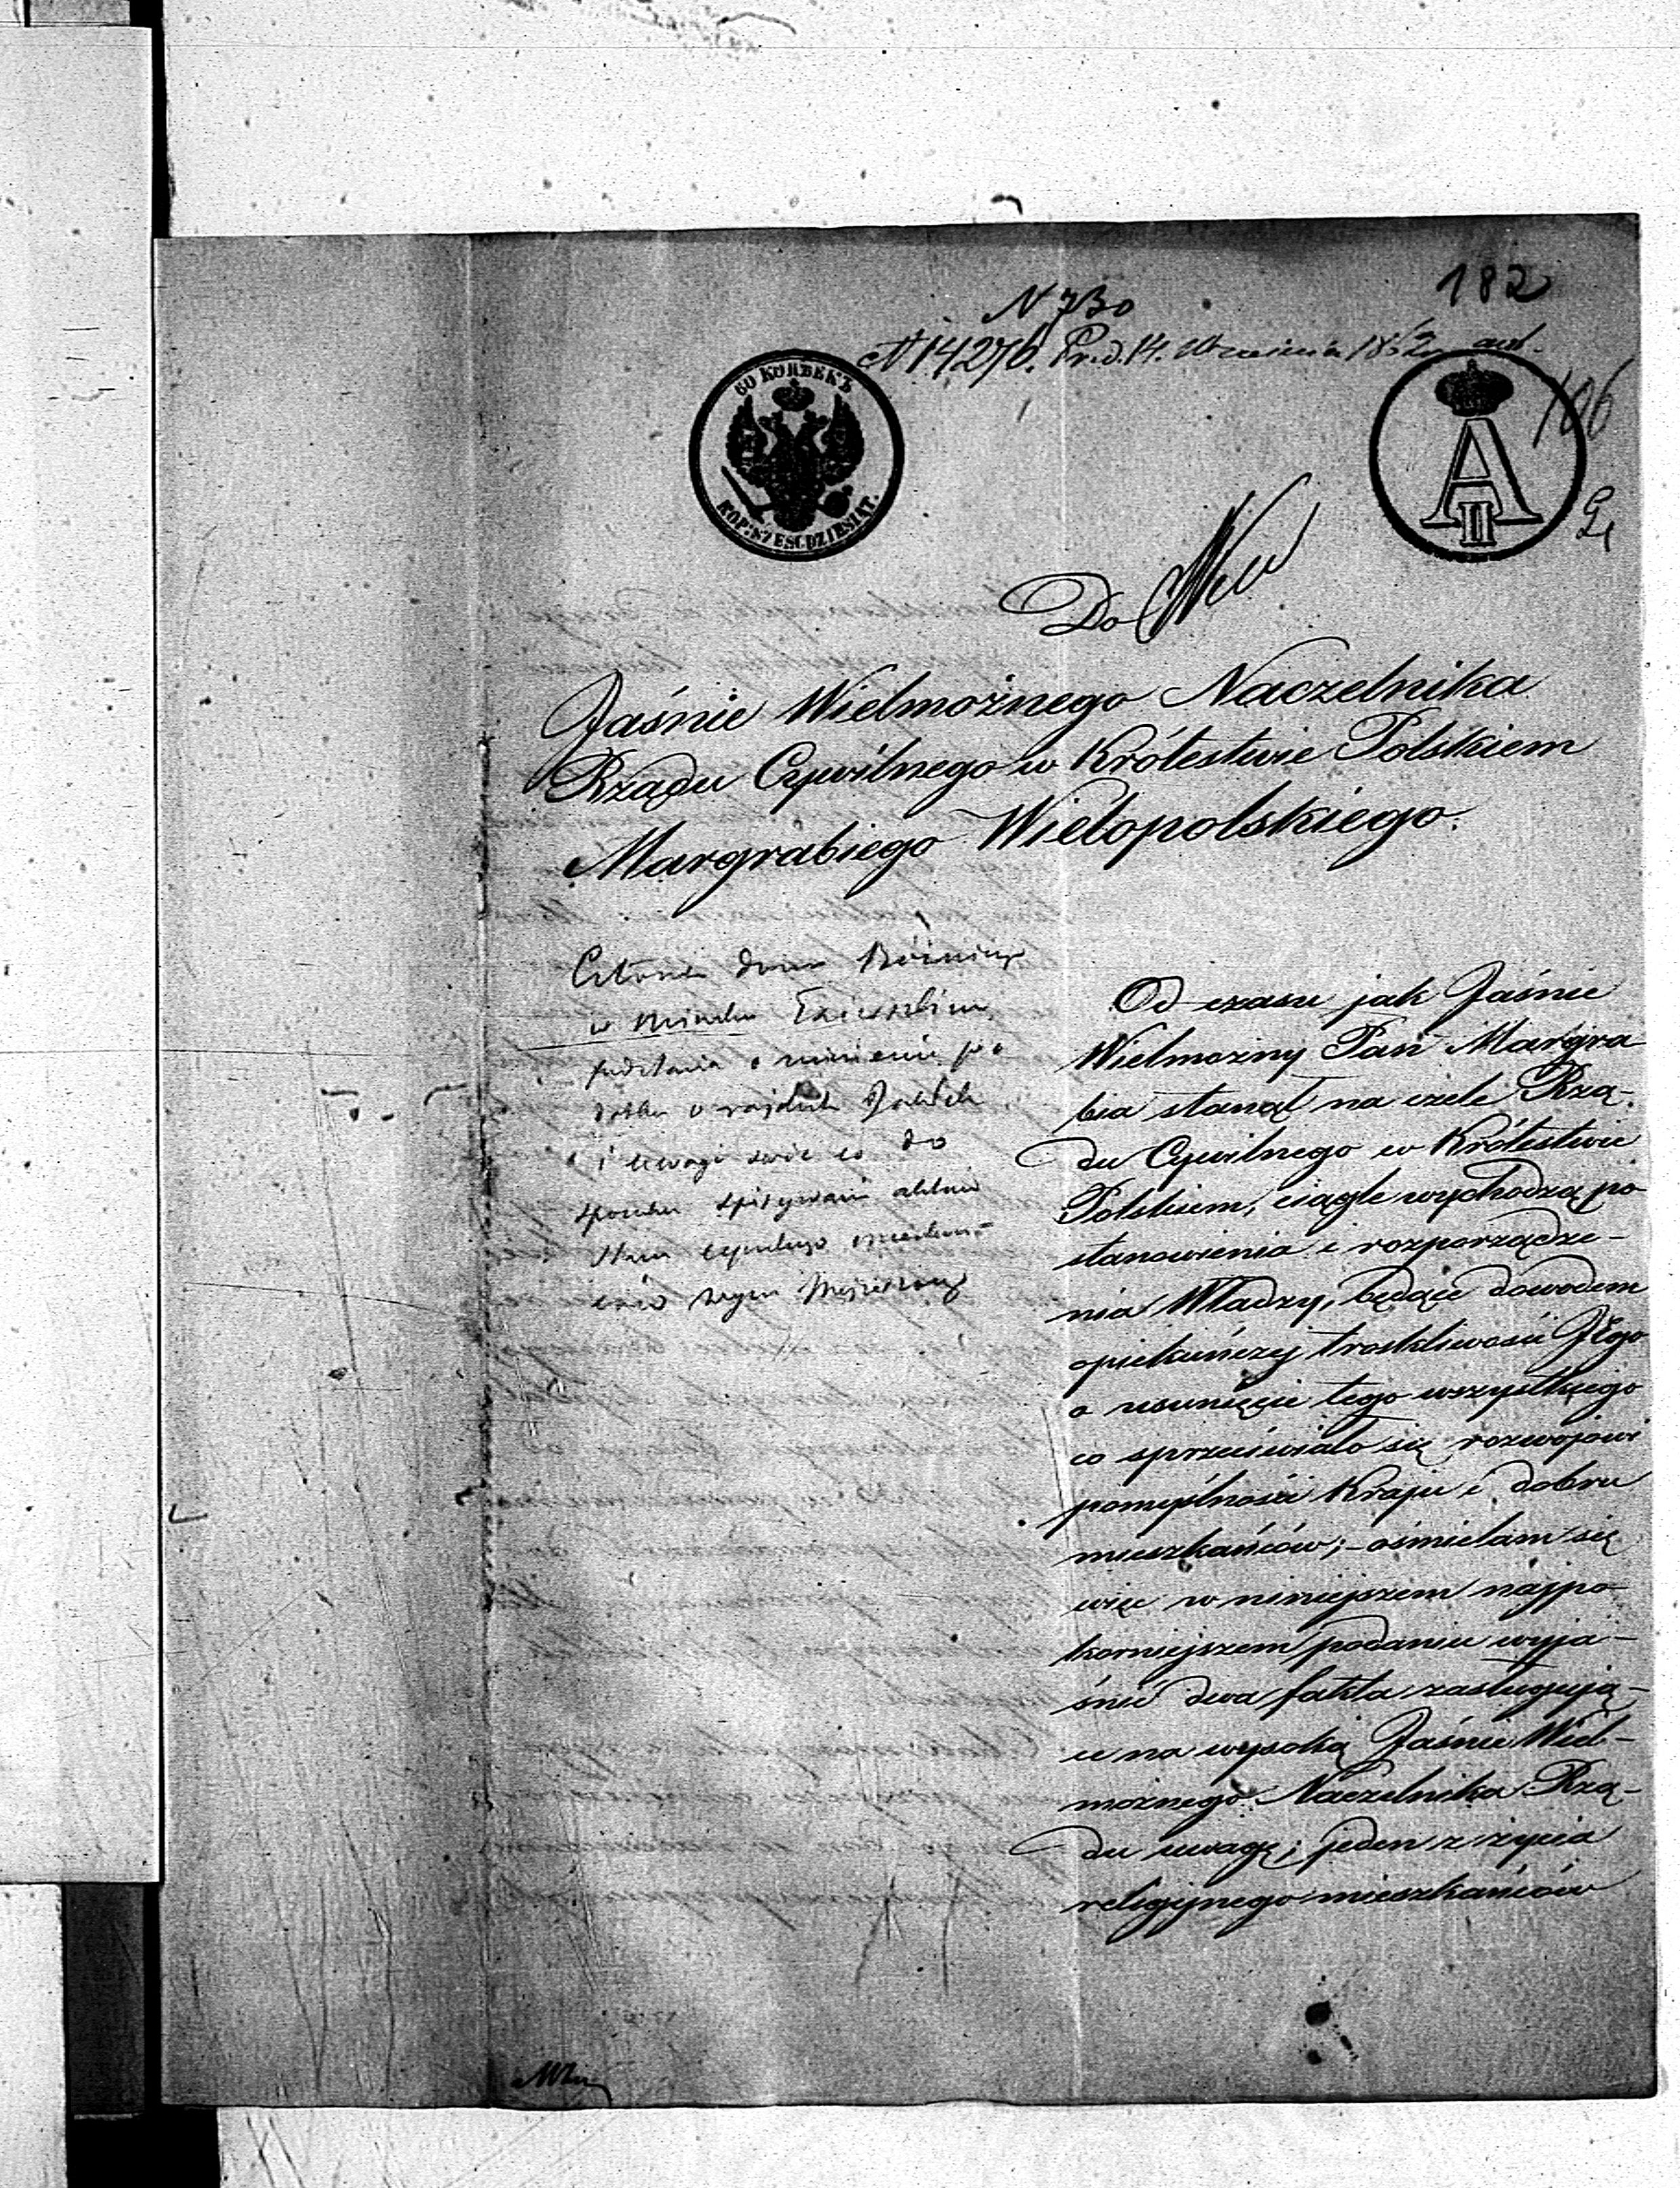 182
N 730
N 14276. Pr. d. 14. Września 1862 r.
106
60 КОПѢЕКЪ
KOP: SZEŚĆDZIESIĄT.
A II
Do
Jaśnie Wielmożnego Naczelnika
Rządu Cywilnego w Królestwie Polskiem
Margrabiego Wielopolskiego.
Członek dozoru Bóżnicz
w
podatku
i uwagi swoie co do
sposobu spisywania aktów
Stanu cywilnego
Od czasu jak Jaśnie
Wielmożny Pan Margra
bia stanął na czele Rzą-
du Cywilnego w Królestwie
Polskiem, ciągle wychodzą po
stanowienia i rozporządze-
nia Władzy, będące dowodem
opiekuńczej troskliwości JEgo
o usunięcie tego wszystkiego
co sprzeciwiało się rozwojowi
pomyślności Kraju i dobru
mieszkańców; - ośmielam się
więc w niniejszem najpo-
korniejszem podaniu wyja-
śnić dwa fakta zasługują-
ce na wysoką Jaśnie Wiel-
możnego Naczelnika Rzą-
du uwagę; jeden z życia
religijnego mieszkańców